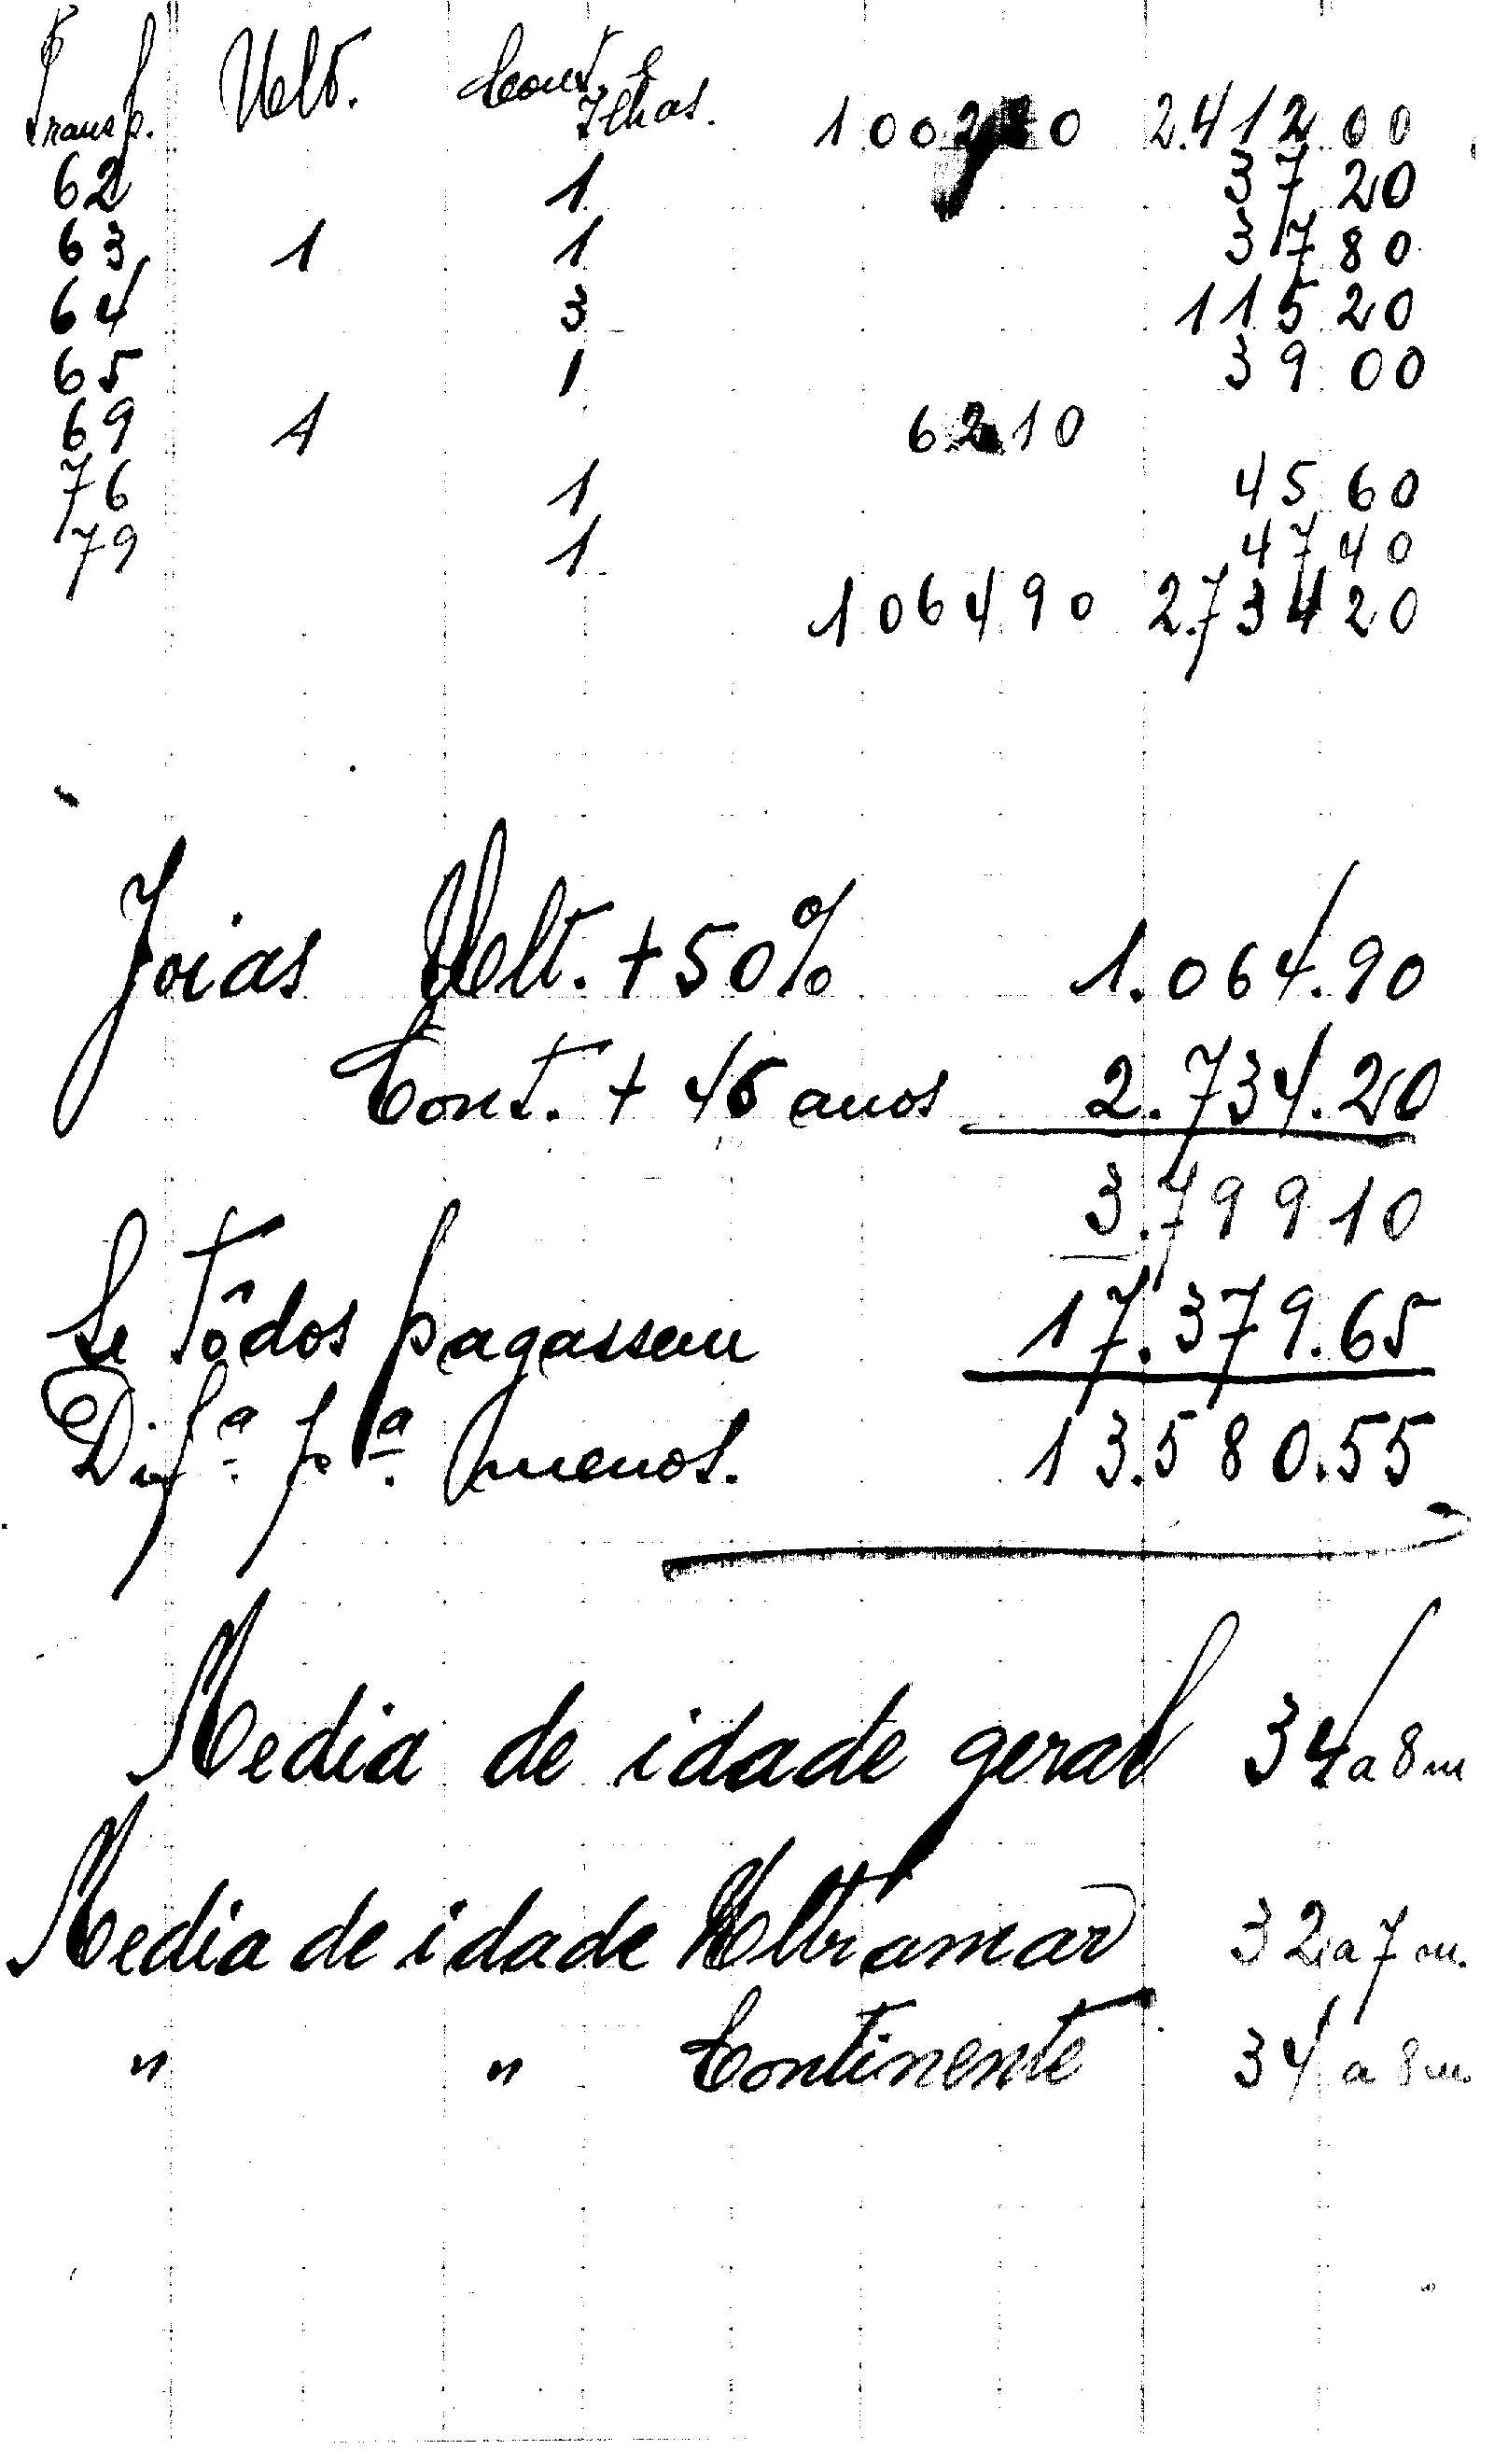 Transp. Ult. Cont. e Ilhas. 100280 2.41200
62 1 3720
63 1 1 3780
64 3 11520
65 1 3900
69 1 6210
76 1 4560
79 1 4740
106490 2.73420
Joias Ult. + 50% 1.064.90
Cont. + 45 anos 2.734.20
3.79910
Se tôdos pagassem 17.379.65
Difª pª menos. 13.580.55
Media de idade geral 34 a 8 m
Media de idade Ultramar 32 a 7 m.
" " Continente 34 a 8 m.